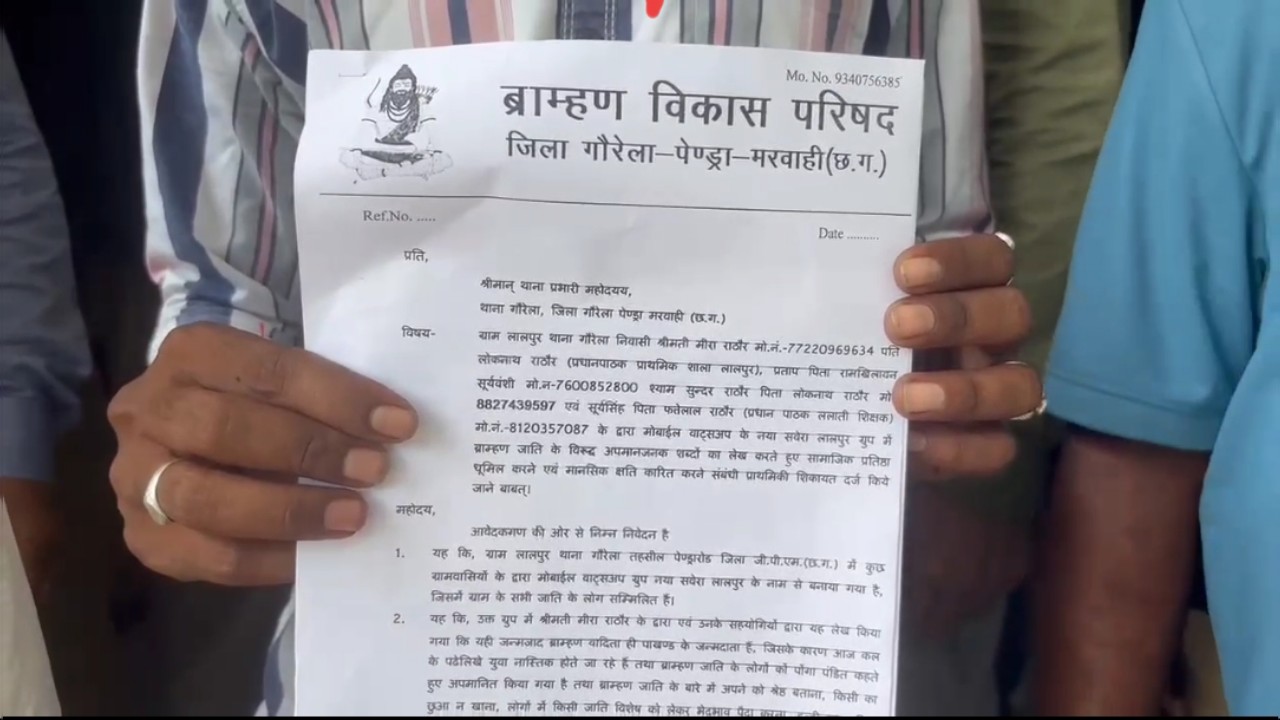 Mo. No. 9340756385
ब्राम्हण विकास परिषद
जिला गौरेला–पेण्ड्रा–मरवाही(छ.ग.)
Ref.No. .....
Date ..........
प्रति,
श्रीमान् थाना प्रभारी महोदयय,
थाना गौरेला, जिला गौरेला पेण्ड्रा मरवाही (छ.ग.)
विषय- ग्राम लालपुर थाना गौरेला निवासी श्रीमती मीरा राठौर मो.नं.-77220969634 पति
लोकनाथ राठौर (प्रधानपाठक प्राथमिक शाला लालपुर), प्रताप पिता रामखिलावन
सूर्यवंशी मो.न-7600852800 श्याम सुन्दर राठौर पिता लोकनाथ राठौर मो
8827439597 एवं सूर्यसिंह पिता फतेलाल राठौर (प्रधान पाठक ललाती शिक्षक)
मो.नं.-8120357087 के द्वारा मोबाईल वाट्सअप के नया सवेरा लालपुर ग्रुप में
ब्राम्हण जाति के विरूद्ध अपमानजनक शब्दों का लेख करते हुए सामाजिक प्रतिष्ठा
धूमिल करने एवं मानसिक क्षति कारित करने संबंधी प्राथमिकी शिकायत दर्ज किये
जाने बाबत्।
महोदय,
आवेदकगण की ओर से निम्न निवेदन है
1. यह कि, ग्राम लालपुर थाना गौरेला तहसील पेण्ड्रारोड जिला जी.पी.एम.(छ.ग.) में कुछ
ग्रामवासियों के द्वारा मोबाईल वाट्सअप ग्रुप नया सवेरा लालपुर के नाम से बनाया गया है,
जिसमें ग्राम के सभी जाति के लोग सम्मिलित हैं।
2. यह कि, उक्त ग्रुप में श्रीमती मीरा राठौर के द्वारा एवं उनके सहयोगियों द्वारा यह लेख किया
गया कि यही जन्मजाद ब्राम्हण वादिता ही पाखण्ड के जन्मदाता हैं, जिसके कारण आज कल
के पढेलिखे युवा नास्तिक होते जा रहे हैं तथा ब्राम्हण जाति के लोगों को पोंगा पंडित कहते
हुए अपमानित किया गया है तथा ब्राम्हण जाति के बारे में अपने को श्रेष्ठ बताना, किसी का
छुआ न खाना, लोगों में किसी जाति विशेष को लेकर भेदभाव पैदा करना,